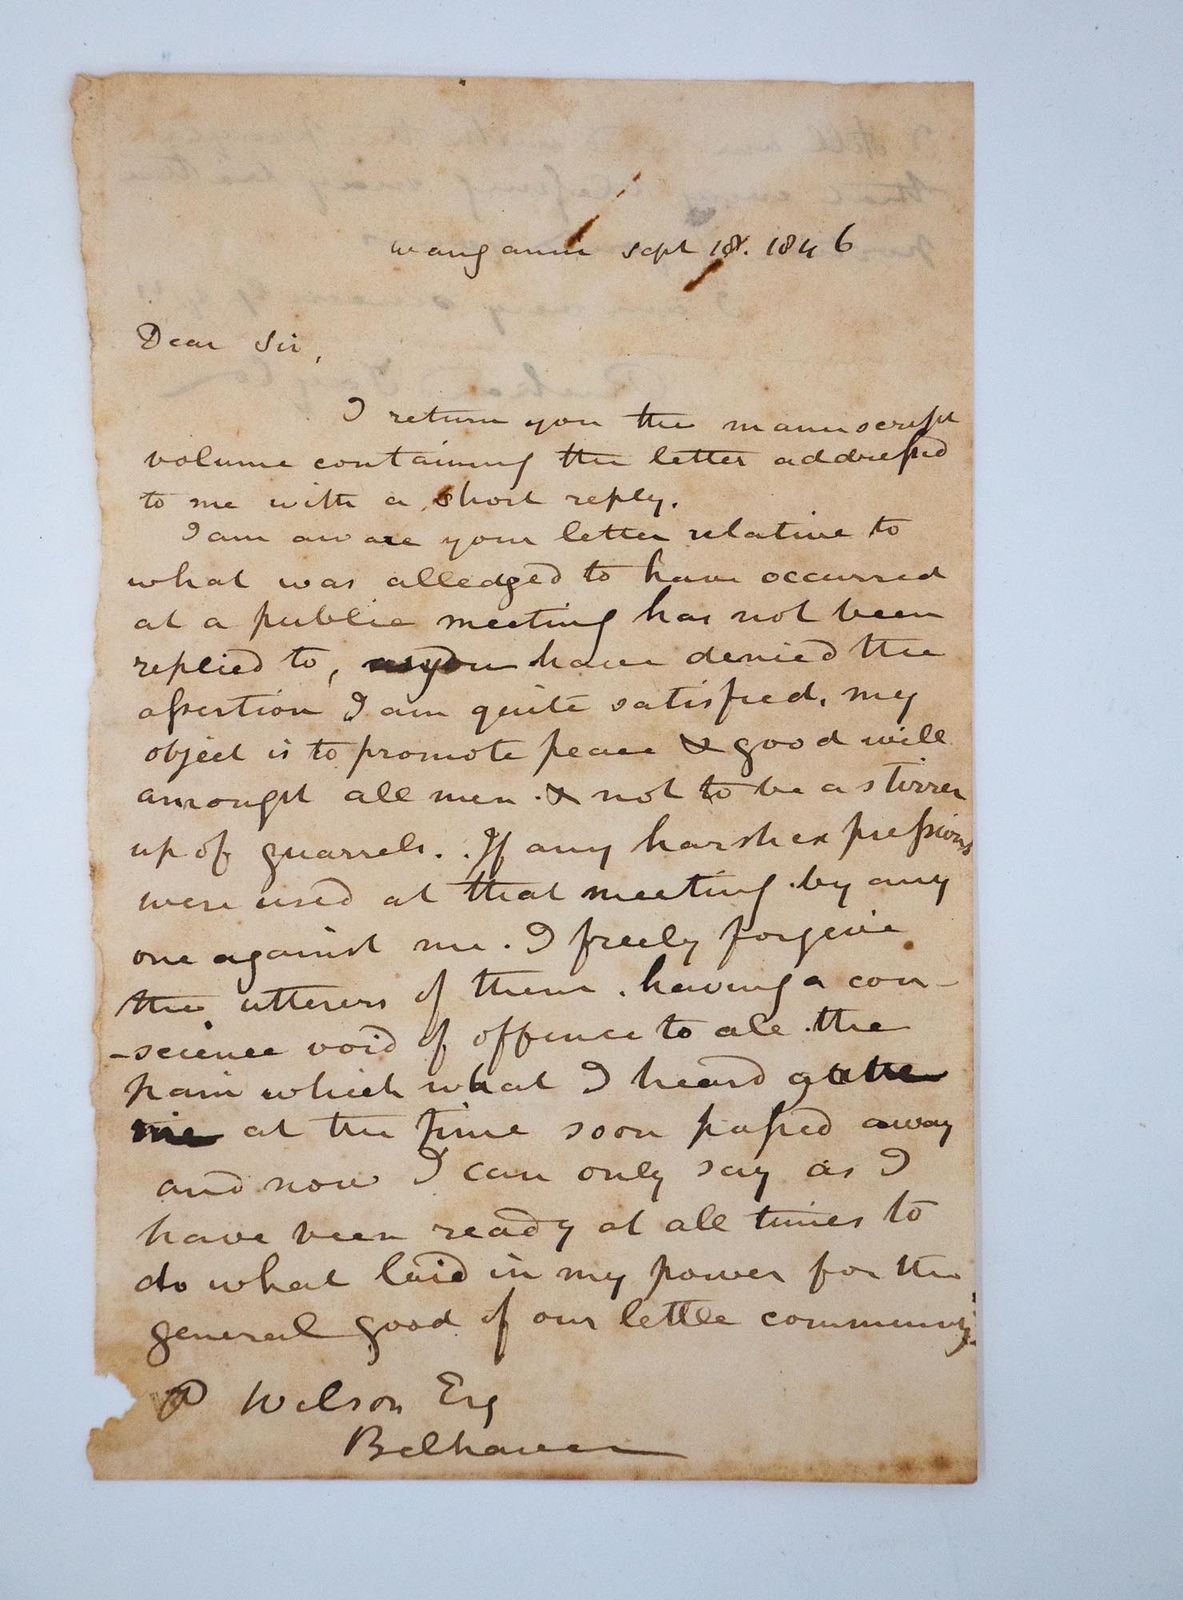 Wanganui Sept 18. 1846
Dear Sir,
I return you the manuscript
volume containing the letter addressed
to me with a short reply.
I am aware your letter relative to
what was alledged to have occurred
at a public meeting has not been
replied to, as you have denied the
assertion I am quite satisfied, my
object is to promote peace & good will
amongst all men & not to be a stirrer
up of quarrels. If any harsh expressions
were used at that meeting by any
one against me. I freely forgive
the utterers of them. having a con-
-science void of offence to all the
pain which what I heard gave
me at the time soon passed away
and now I can only say as I
have been ready at all times to
do what laid in my power for the
general good of our little community
P Wilson Esq
Belhaven